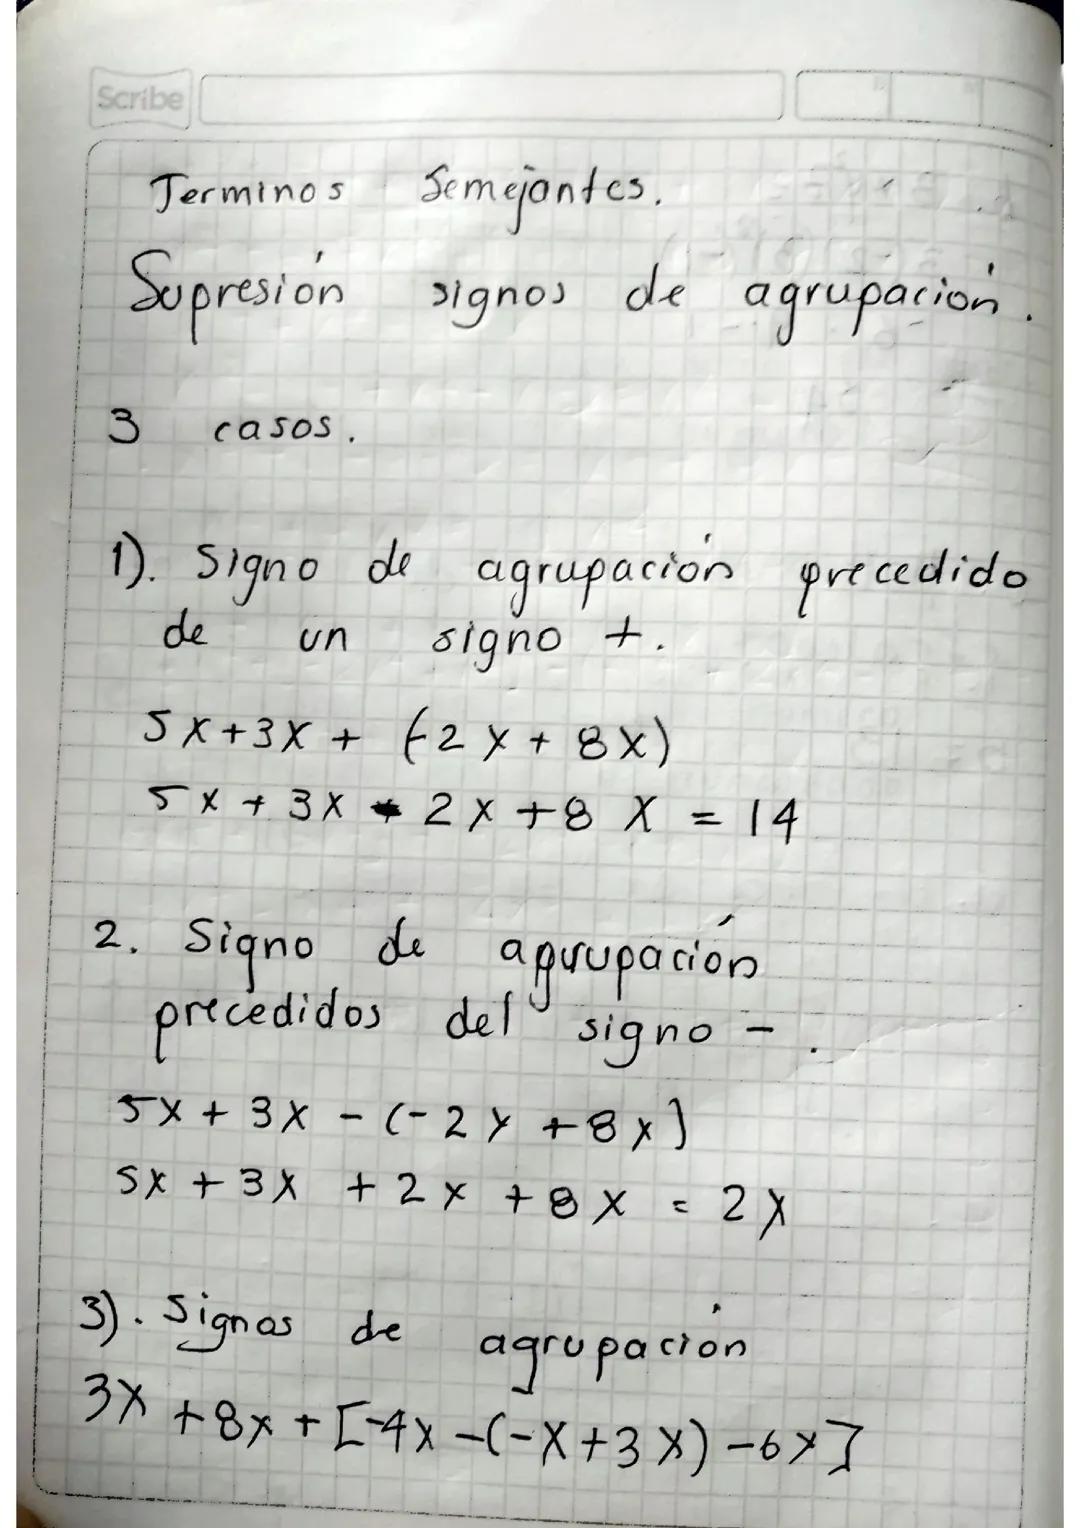 Scribe
Terminos Semejantes.
Supresión signos de agrupación.
3 casos.
1). Signo de agrupación precedido
de un signo +.
5x+3x + (-2x + 8x)
5x + 3x - 2x +8 x = 14
2. Signo de agrupación
precedidos del signo - .
5x + 3x - (-2x +8x)
5x + 3x + 2x + 8x = 2x
3). Signos de agrupación
3x +8x + [-4x -(-x+3x) -6x]